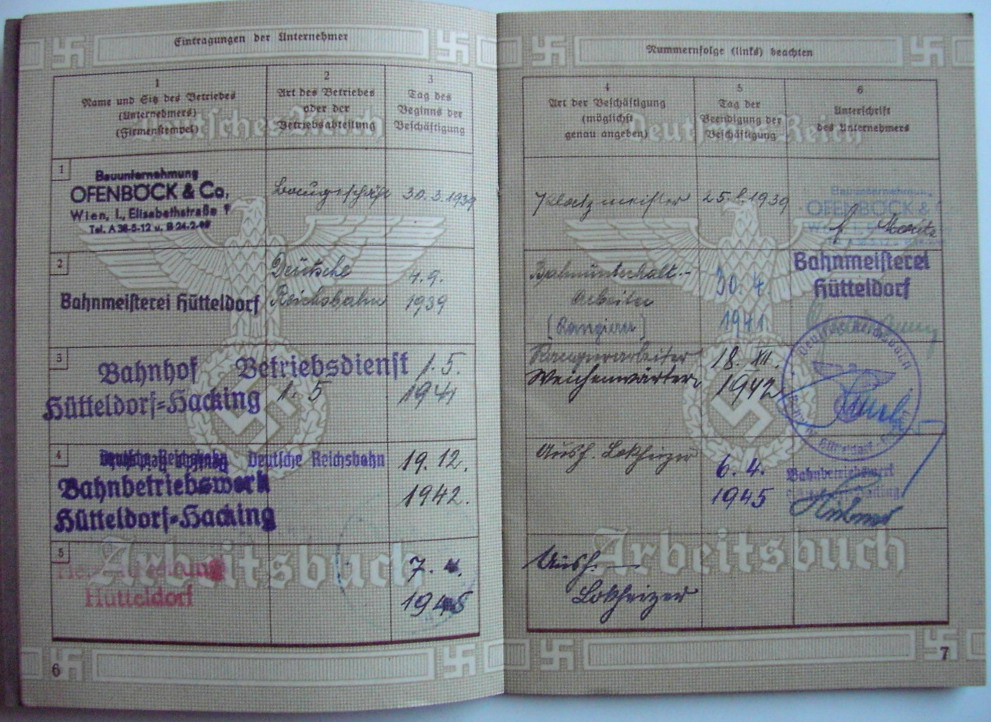 Eintragungen der Unternehmer
1
Name und Sitz des Betriebes
(Unternehmers)
(Firmenstempel)
2
Art des Betriebes
oder der
Betriebsabteilung
3
Tag des
Beginns der
Beschäftigung
1
Bauunternehmung
OFENBÖCK & Co,
Wien, I., Elisabethstraße
Tel. A 36-5-12 u. B 24-2-
Baugeschäft
30.3.1939
2
Bahnmeisterei Hütteldorf
Deutsche
Reichsbahn
4.9.
1939
3
Bahnhof Betriebsdienst
Hütteldorf-Hacking
1.5
1.5.
1941
4
Deutsche Reichsbahn Deutsche Reichsbahn
Bahnbetriebswerk
Hütteldorf-Hacking
19.12.
1942.
5
Hütteldorf
7.4.
1945
Deutsches Reich
Arbeitsbuch
6
Nummernfolge (links) beachten
4
Art der Beschäftigung
(möglichst
genau angeben)
5
Tag der
Beendigung der
Beschäftigung
6
Unterschrift
des Unternehmers
25.8.1939
Bauunternehmung
OFENBÖCK &
Bahnunterhalt.-
Arbeiter
30.4
1941
Bahnmeisterei
Hütteldorf
Rangierarbeiter
Weichenwärter
18.XII.
1942
Deutsche Reichsbahn
Aush. Lokheizer
6.4.
1945
Bahnbetriebswerk
Aush.
Lokheizer
Deutsches Reich
Arbeitsbuch
7